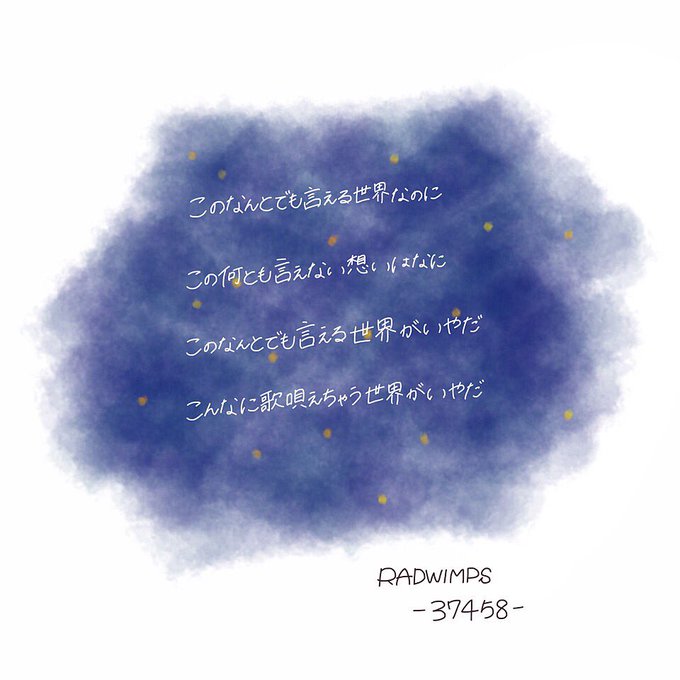 このなんとでも言える世界なのに
この何とも言えない想いはなに
このなんとでも言える世界がいやだ
こんなに歌唄えちゃう世界がいやだ
RADWIMPS
-37458-